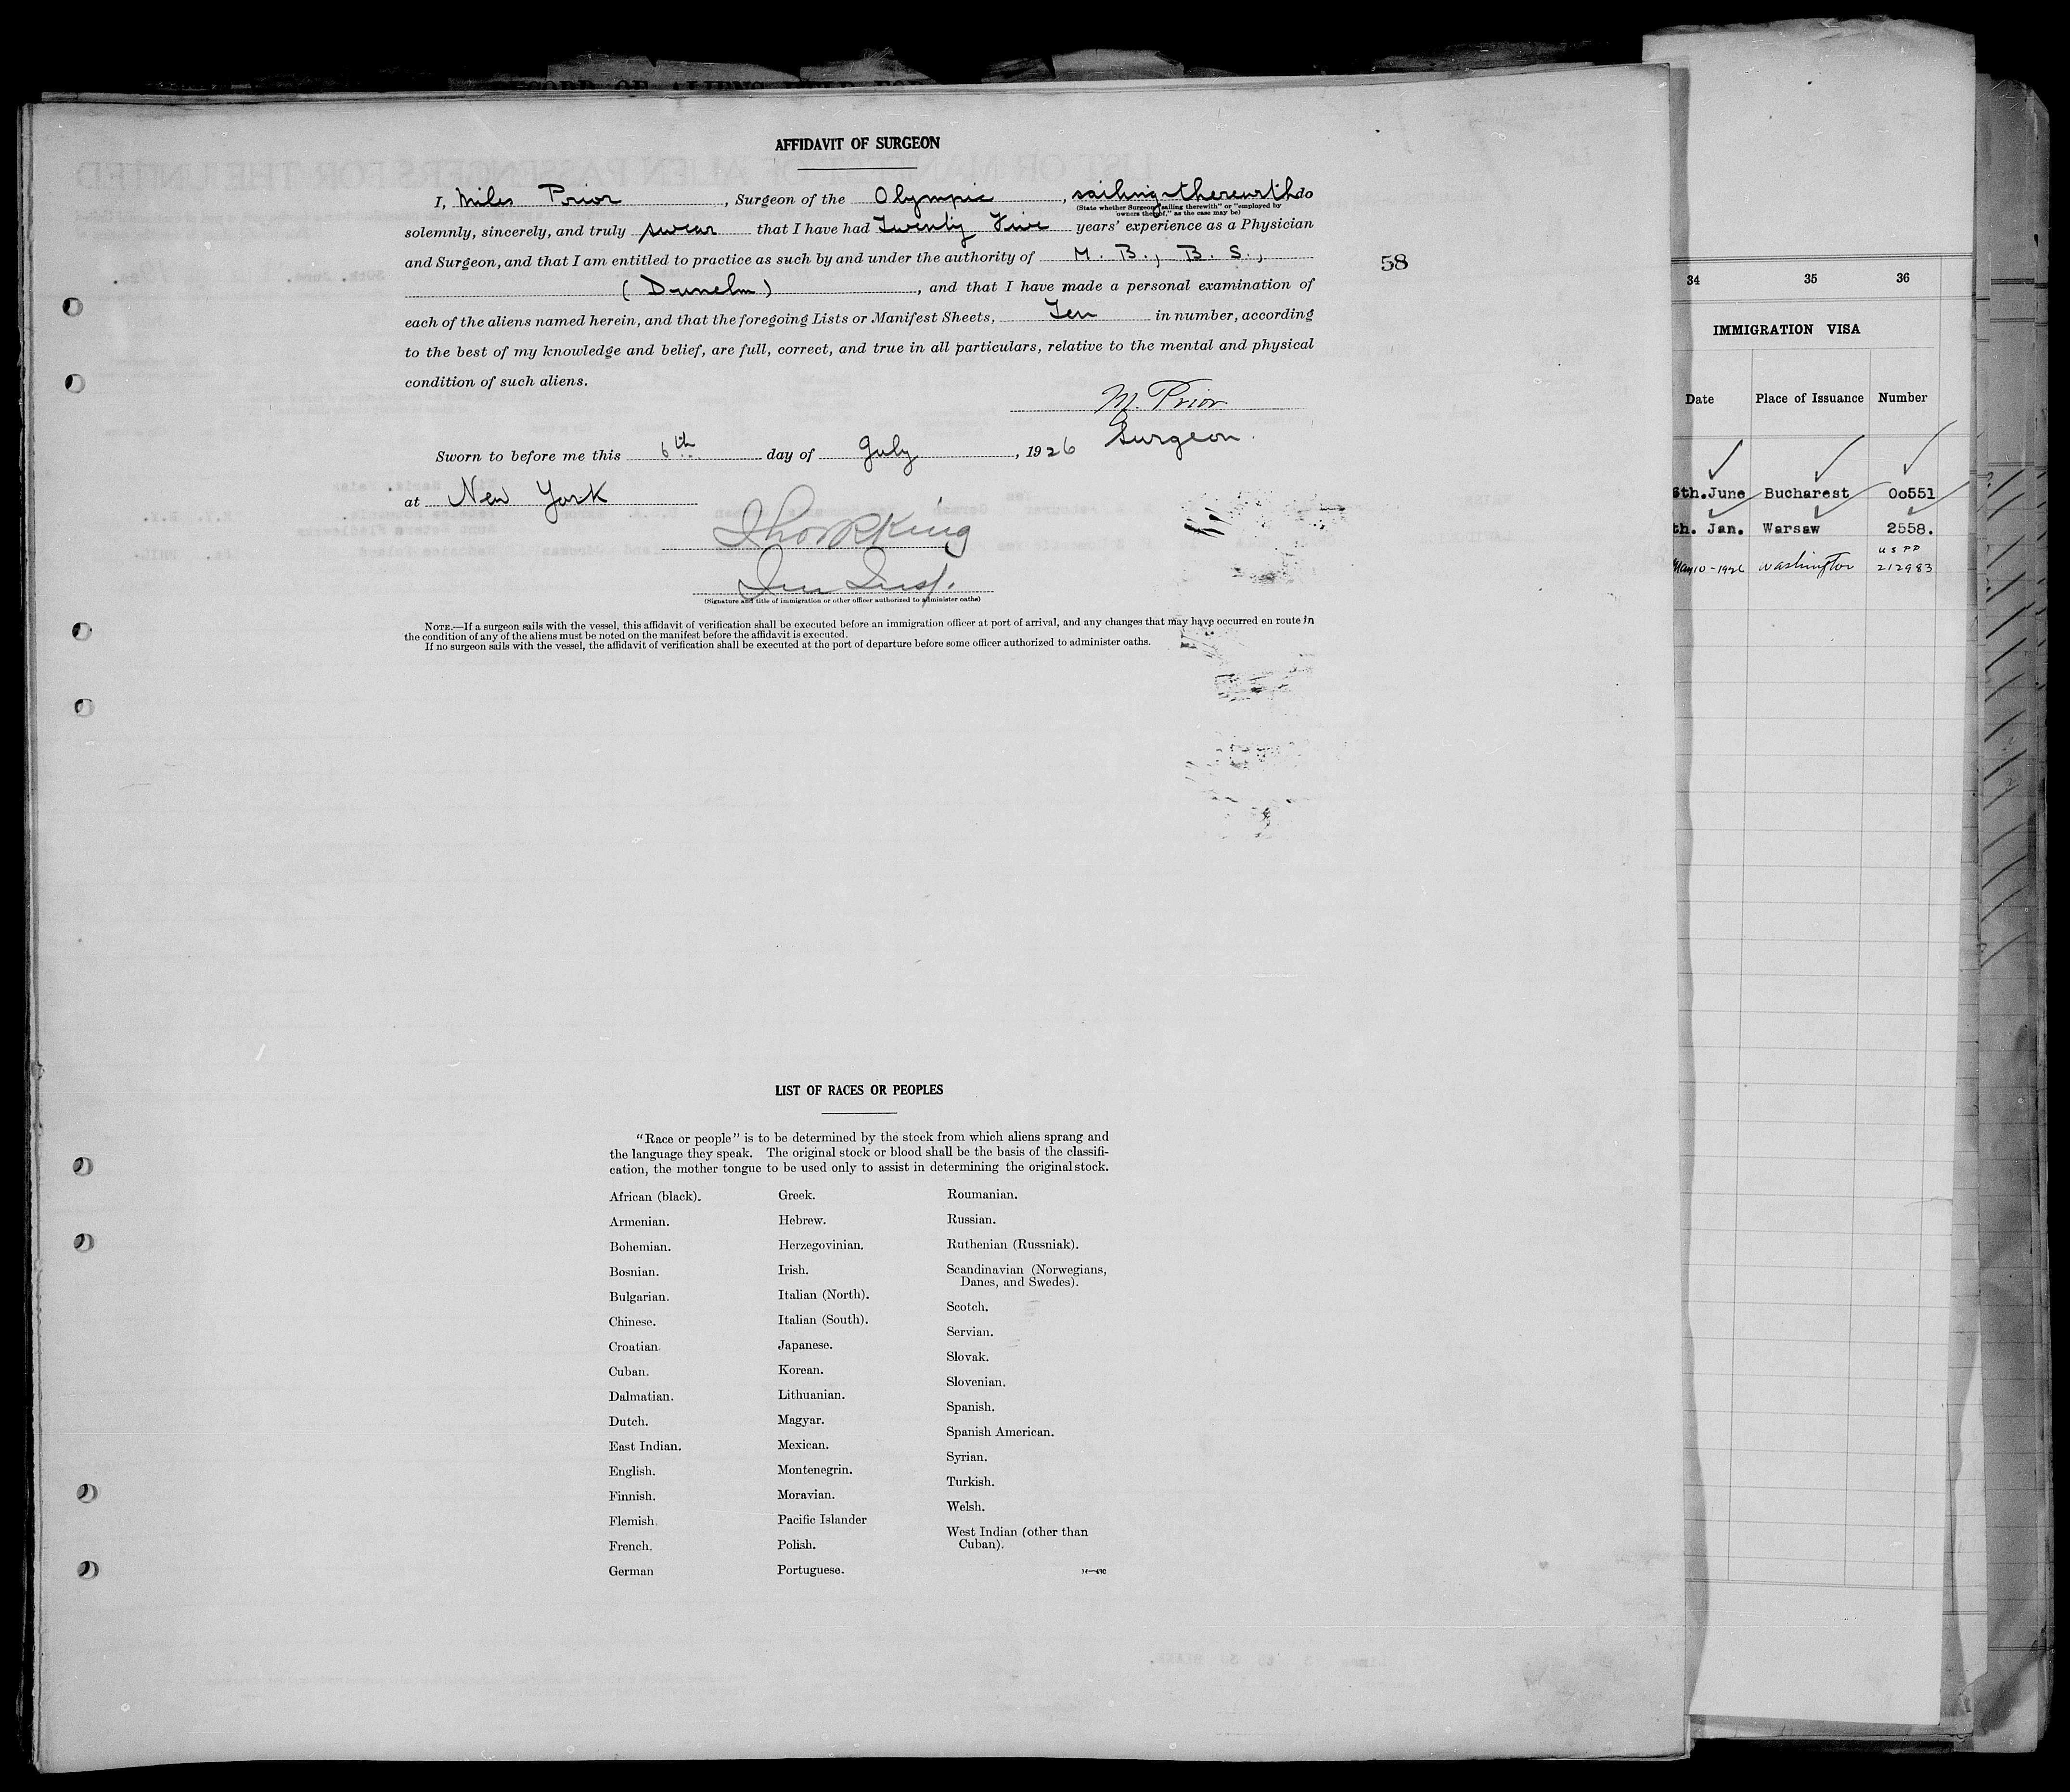 AFFIDAVIT OF SURGEON
I, Miles Prior, Surgeon of the Olympic, sailing therewith do
(State whether Surgeon "sailing therewith" or "employed by
owners thereof," as the case may be)
solemnly, sincerely, and truly swear that I have had Twenty Five years' experience as a Physician
and Surgeon, and that I am entitled to practice as such by and under the authority of M. B., B. S.,
(Dunelm), and that I have made a personal examination of
each of the aliens named herein, and that the foregoing Lists or Manifest Sheets, Ten in number, according
to the best of my knowledge and belief, are full, correct, and true in all particulars, relative to the mental and physical
condition of such aliens.
M. Prior
Surgeon.
Sworn to before me this 6th day of July, 1926
at New York
Imm Insp.
(Signature and title of immigration or other officer authorized to administer oaths)
NOTE.—If a surgeon sails with the vessel, this affidavit of verification shall be executed before an immigration officer at port of arrival, and any changes that may have occurred en route in
the condition of any of the aliens must be noted on the manifest before the affidavit is executed.
If no surgeon sails with the vessel, the affidavit of verification shall be executed at the port of departure before some officer authorized to administer oaths.
58
LIST OF RACES OR PEOPLES
"Race or people" is to be determined by the stock from which aliens sprang and
the language they speak. The original stock or blood shall be the basis of the classifi-
cation, the mother tongue to be used only to assist in determining the original stock.
African (black).
Armenian.
Bohemian.
Bosnian.
Bulgarian.
Chinese.
Croatian.
Cuban.
Dalmatian.
Dutch.
East Indian.
English.
Finnish.
Flemish.
French.
German
Greek.
Hebrew.
Herzegovinian.
Irish.
Italian (North).
Italian (South).
Japanese.
Korean.
Lithuanian.
Magyar.
Mexican.
Montenegrin.
Moravian.
Pacific Islander
Polish.
Portuguese.
Roumanian.
Russian.
Ruthenian (Russniak).
Scandinavian (Norwegians,
Danes, and Swedes).
Scotch.
Servian.
Slovak.
Slovenian.
Spanish.
Spanish American.
Syrian.
Turkish.
Welsh.
West Indian (other than
Cuban).
34 35 36
IMMIGRATION VISA
Date Place of Issuance Number
th. June Bucharest 00551
th. Jan. Warsaw 2558.
USPP
May 10-1926 Washington 212983